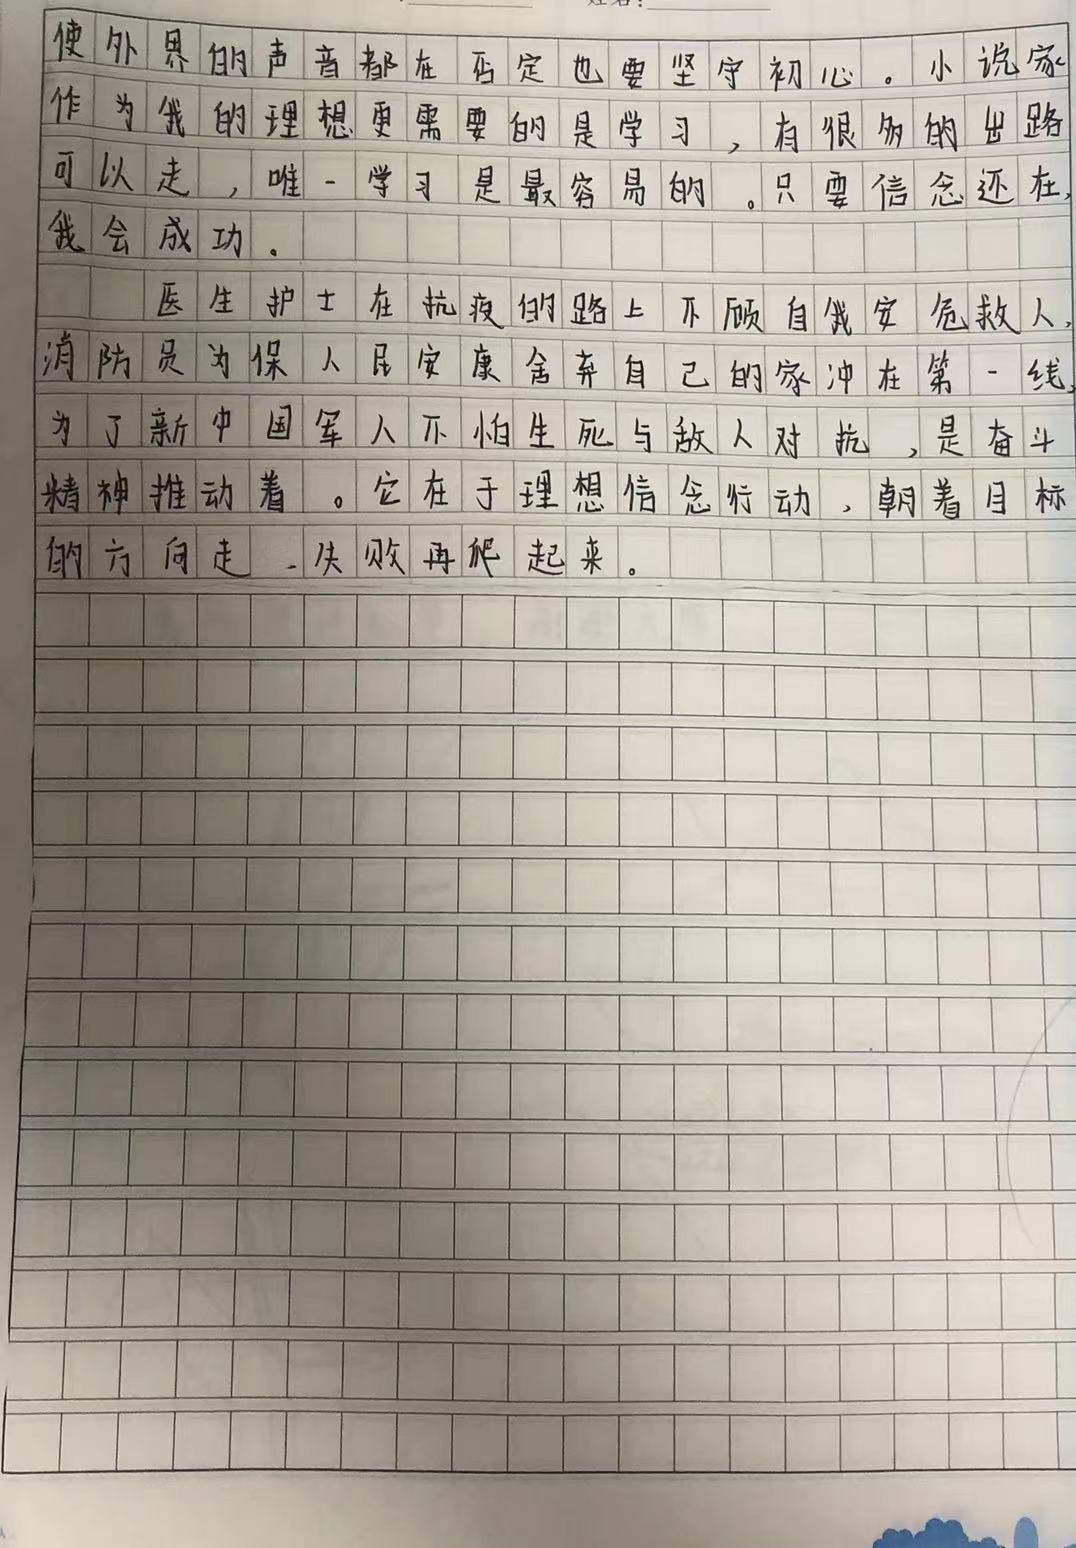 姓名：
使外界的声音都在否定也要坚守初心。小说家
作为我的理想更需要的是学习，有很多的出路
可以走，唯一学习是最容易的。只要信念还在，
我会成功。
医生护士在抗疫的路上不顾自我安危救人，
消防员为保人民安康舍弃自己的家冲在第一线，
为了新中国军人不怕生死与敌人对抗，是奋斗
精神推动着。它在于理想信念行动，朝着目标
的方向走、失败再爬起来。